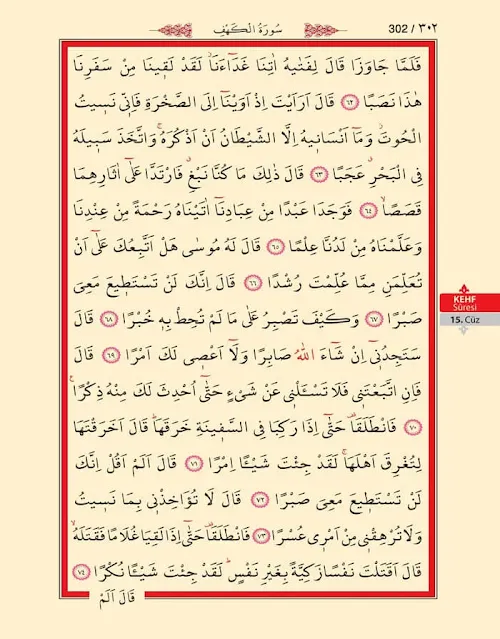 سُورَةُ الْكَهْفِ
302 / ٣٠٢
فَلَمَّا جَاوَزَا قَالَ لِفَتٰيهُ اٰتِنَا غَدَٓاءَنَاۘ لَقَدْ لَقٖينَا مِنْ سَفَرِنَا
هٰذَا نَصَبًا ﴿٦٢﴾ قَالَ اَرَاَيْتَ اِذْ اَوَيْنَٓا اِلَى الصَّخْرَةِ فَاِنّٖى نَسٖيتُ
الْحُوتَۘ وَمَٓا اَنْسَانٖيهُ اِلَّا الشَّيْطَانُ اَنْ اَذْكُرَهُۚ وَاتَّخَذَ سَبٖيلَهُ
فِى الْبَحْرِۗ عَجَبًا ﴿٦٣﴾ قَالَ ذٰلِكَ مَا كُنَّا نَبْغِۗ فَارْتَدَّا عَلٰٓى اٰثَارِهِمَا
قَصَصًاۙ ﴿٦٤﴾ فَوَجَدَا عَبْدًا مِنْ عِبَادِنَٓا اٰتَيْنَاهُ رَحْمَةً مِنْ عِنْدِنَا
وَعَلَّمْنَاهُ مِنْ لَدُنَّا عِلْمًا ﴿٦٥﴾ قَالَ لَهُ مُوسٰى هَلْ اَتَّبِعُكَ عَلٰٓى اَنْ
تُعَلِّمَنِ مِمَّا عُلِّمْتَ رُشْدًا ﴿٦٦﴾ قَالَ اِنَّكَ لَنْ تَسْتَطٖيعَ مَعِىَ
صَبْرًا ﴿٦٧﴾ وَكَيْفَ تَصْبِرُ عَلٰى مَا لَمْ تُحِطْ بِهٖ خُبْرًا ﴿٦٨﴾ قَالَ
سَتَجِدُنٖٓى اِنْ شَٓاءَ اللّٰهُ صَابِرًا وَلَٓا اَعْصٖى لَكَ اَمْرًا ﴿٦٩﴾ قَالَ
فَاِنِ اتَّبَعْتَنٖى فَلَا تَسْـَٔلْنٖى عَنْ شَىْءٍ حَتّٰٓى اُحْدِثَ لَكَ مِنْهُ ذِكْرًاۚ
﴿٧٠﴾ فَانْطَلَقَاۘ حَتّٰٓى اِذَا رَكِبَا فِى السَّفٖينَةِ خَرَقَهَاۘ قَالَ اَخَرَقْتَهَا
لِتُغْرِقَ اَهْلَهَاۚ لَقَدْ جِئْتَ شَيْـًٔا اِمْرًا ﴿٧١﴾ قَالَ اَلَمْ اَقُلْ اِنَّكَ
لَنْ تَسْتَطٖيعَ مَعِىَ صَبْرًا ﴿٧٢﴾ قَالَ لَا تُؤَاخِذْنٖى بِمَا نَسٖيتُ
وَلَا تُرْهِقْنٖى مِنْ اَمْرٖى عُسْرًا ﴿٧٣﴾ فَانْطَلَقَاۘ حَتّٰٓى اِذَا لَقِيَا غُلَامًا فَقَتَلَهُۙ
قَالَ اَقَتَلْتَ نَفْسًا زَكِيَّةً بِغَيْرِ نَفْسٍۜ لَقَدْ جِئْتَ شَيْـًٔا نُكْرًا ﴿٧٤﴾
قَالَ اَلَمْ
KEHF
Sûresi
15. Cüz